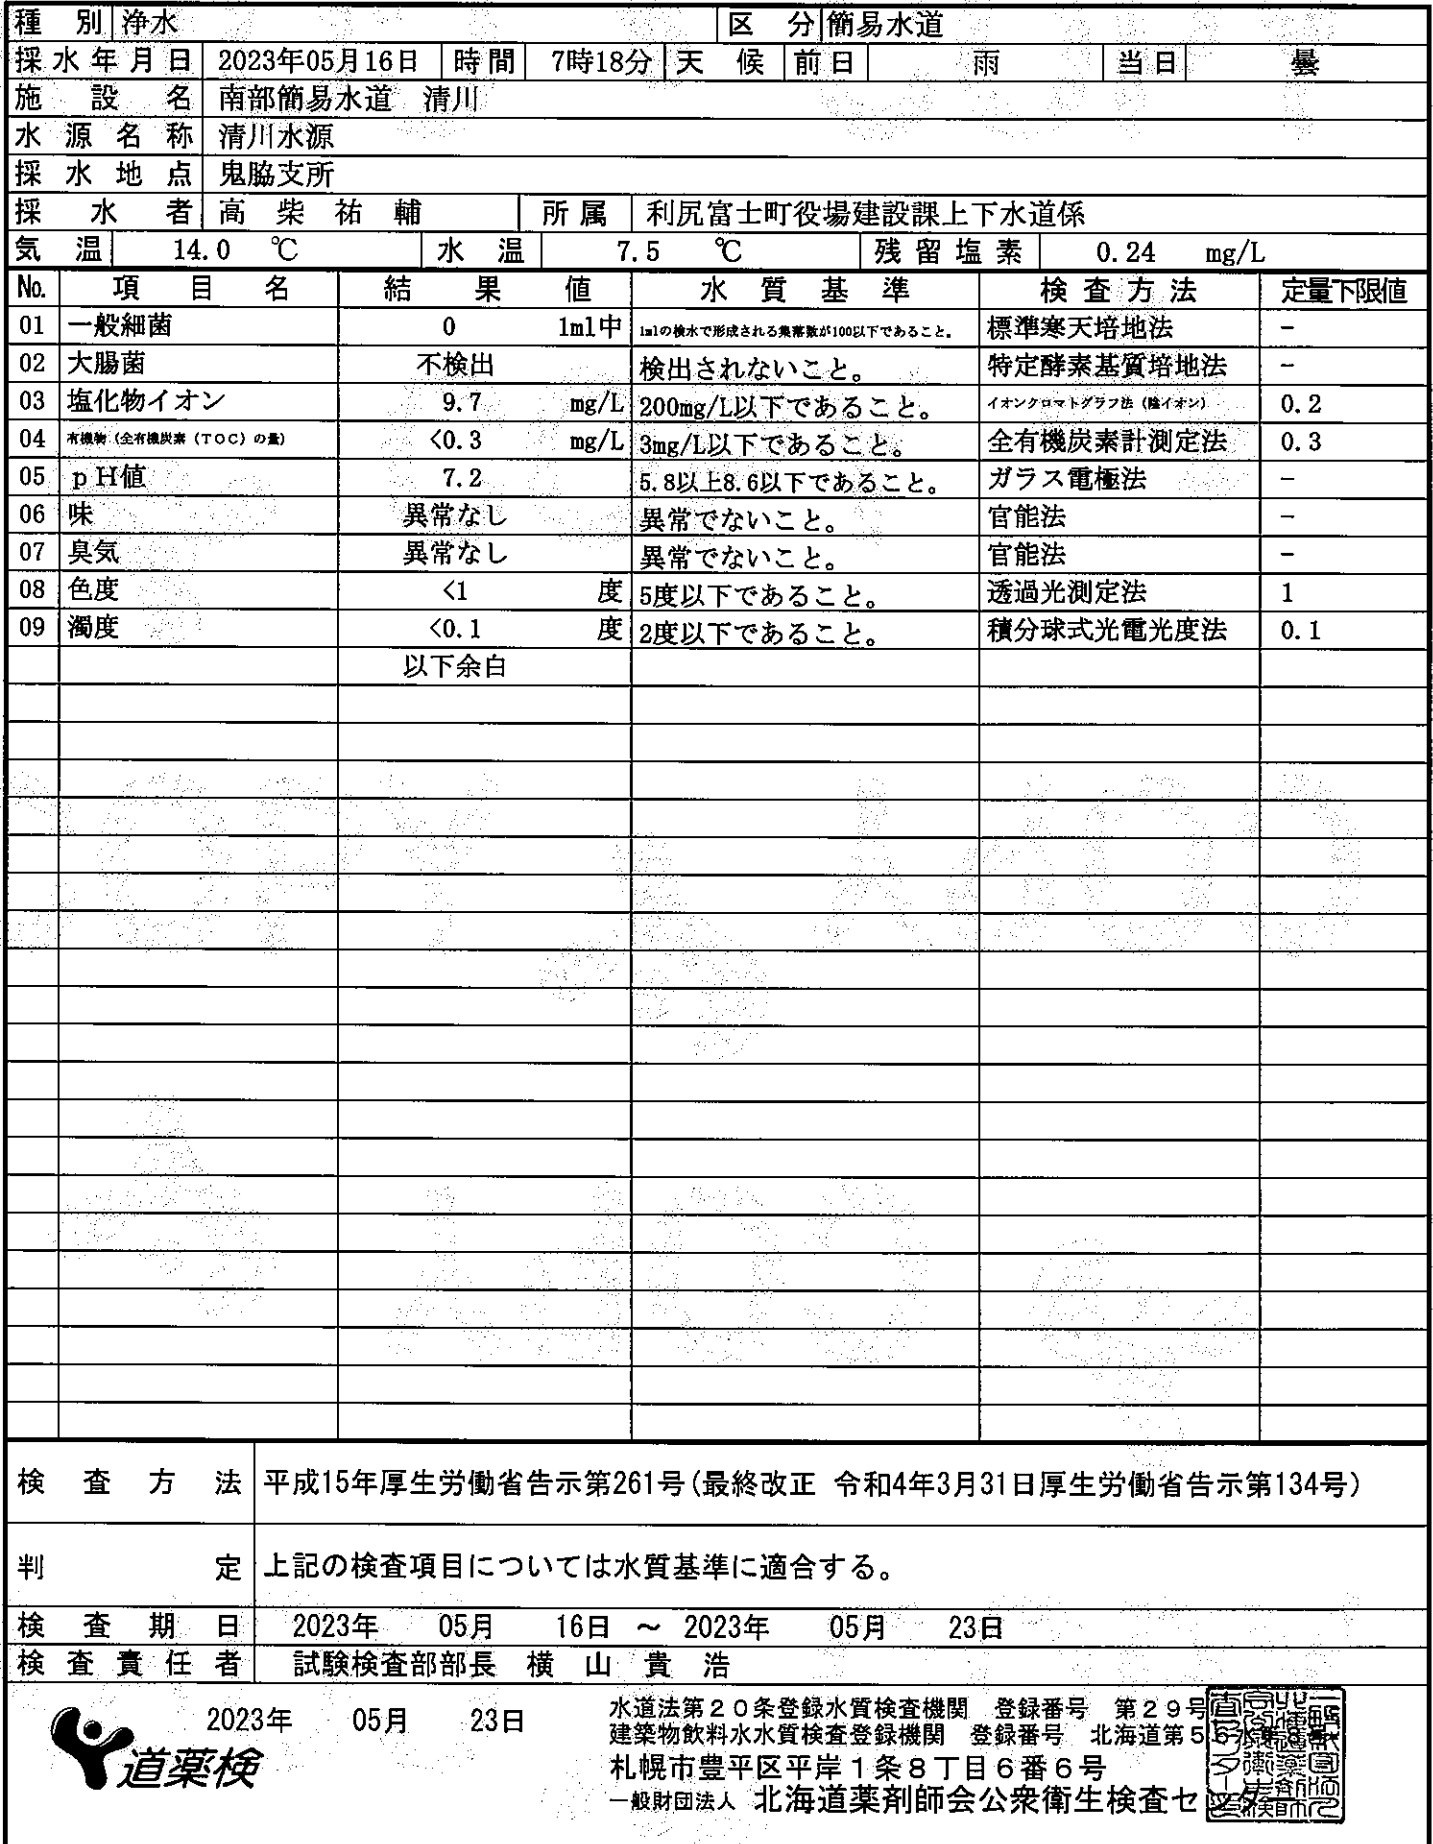 種別 浄水 区分 簡易水道
採水年月日 2023年05月16日 時間 7時18分 天候 前日 雨 当日 曇
施設名 南部簡易水道 清川
水源名称 清川水源
採水地点 鬼脇支所
採水者 高柴祐輔 所属 利尻富士町役場建設課上下水道係
気温 14.0 ℃ 水温 7.5 ℃ 残留塩素 0.24 mg/L
No. 項目名 結果値 水質基準 検査方法 定量下限値
01 一般細菌 0 1ml中 1mlの検水で形成される集落数が100以下であること。 標準寒天培地法 -
02 大腸菌 不検出 検出されないこと。 特定酵素基質培地法 -
03 塩化物イオン 9.7 mg/L 200mg/L以下であること。 イオンクロマトグラフ法（陰イオン） 0.2
04 有機物（全有機炭素（TOC）の量） <0.3 mg/L 3mg/L以下であること。 全有機炭素計測定法 0.3
05 pH値 7.2 5.8以上8.6以下であること。 ガラス電極法 -
06 味 異常なし 異常でないこと。 官能法 -
07 臭気 異常なし 異常でないこと。 官能法 -
08 色度 <1 度 5度以下であること。 透過光測定法 1
09 濁度 <0.1 度 2度以下であること。 積分球式光電光度法 0.1
以下余白
検査方法 平成15年厚生労働省告示第261号（最終改正 令和4年3月31日厚生労働省告示第134号）
判定 上記の検査項目については水質基準に適合する。
検査期日 2023年 05月 16日 ～ 2023年 05月 23日
検査責任者 試験検査部部長 横山貴浩
2023年 05月 23日
道薬検
水道法第20条登録水質検査機関 登録番号 第29号
建築物飲料水水質検査登録機関 登録番号 北海道第56水第8号
札幌市豊平区平岸1条8丁目6番6号
一般財団法人 北海道薬剤師会公衆衛生検査センター